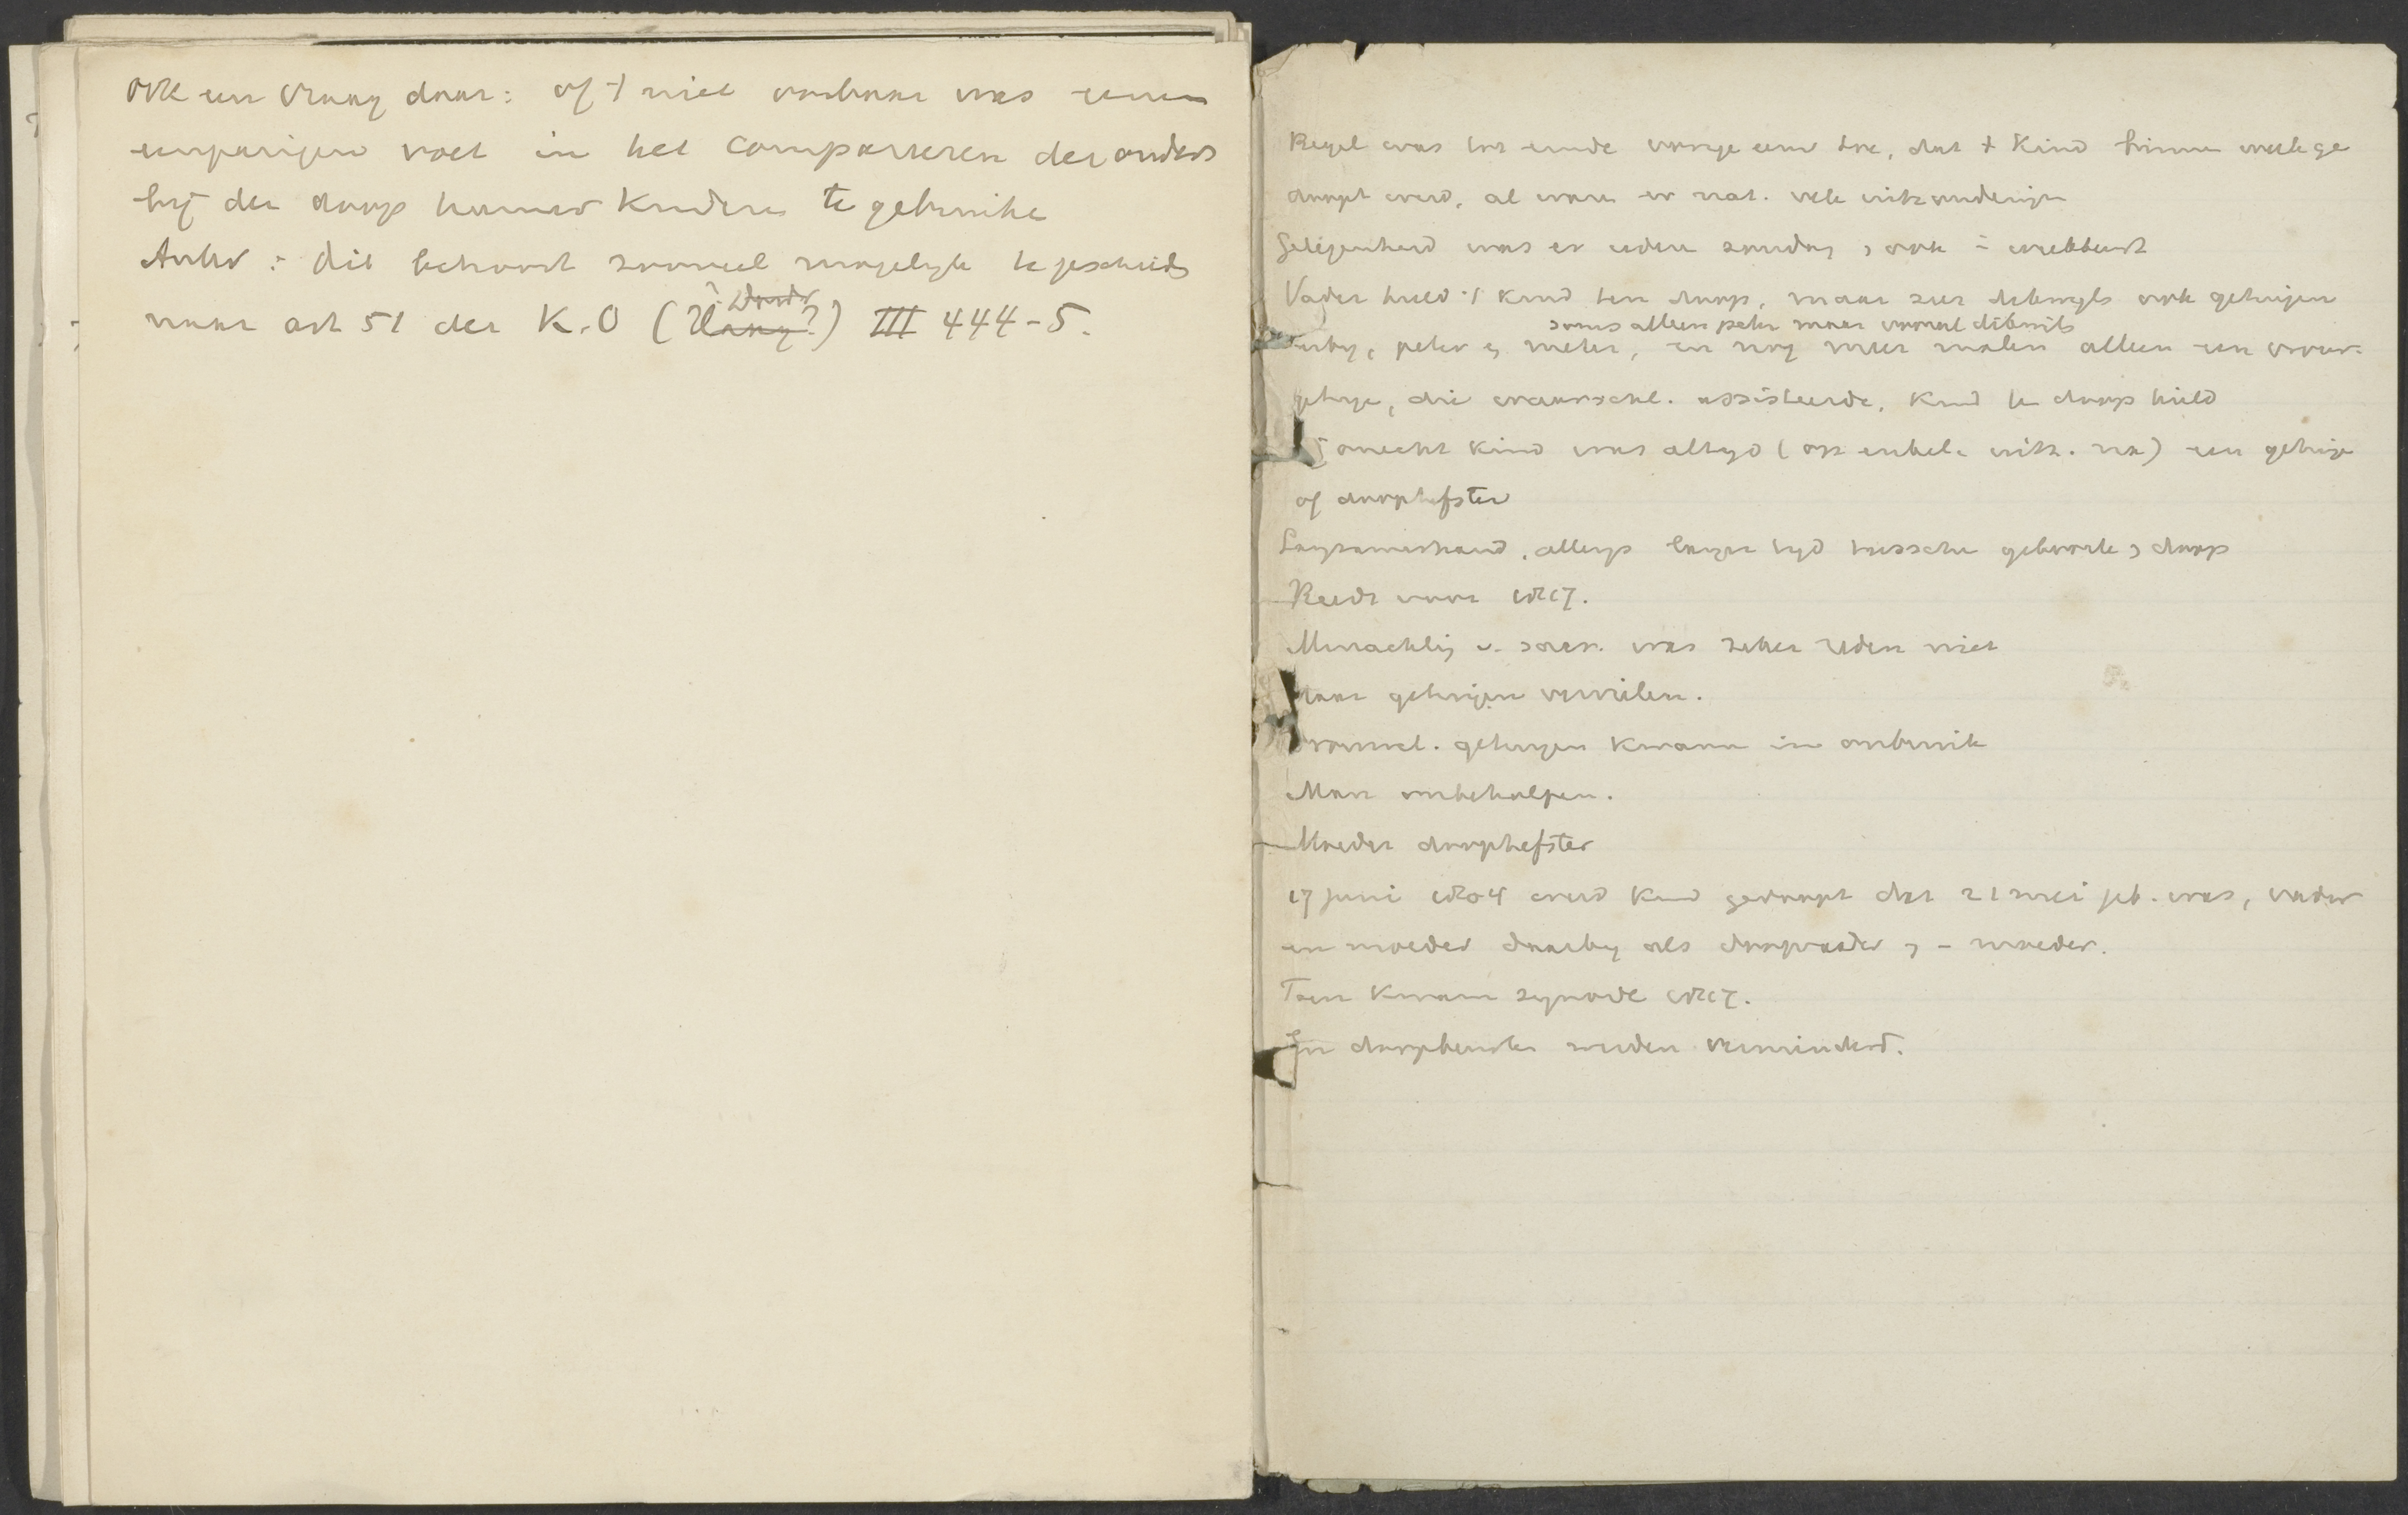 ook een vraag daar: of 't niet oorbaar was eenen
eenparigen voet in het compareeren der ouders
bij den doop hunner kinderen te gebruiken
Antw: dit behoort zooveel mogelijk te geschieden
naar art 51 der K.O (Haag?) III 444-5.
Regel was tot einde vorige eeuw toe, dat 't kind binnen week ge
doopt werd, al waren er nat. vele uitzonderingen
Gelegenheid was er iederen zondag, ook i weekbeurt
Vader hield 't kind ten doop, maar zeer dikwijls ook getuigen
soms alleen peter maar vooral dikwijls
erbij, peter en meter, en nog meer malen alleen een vrouw.
getuige, die waarschl. assisteerde, kind ten doop hield
onecht kind was altijd (op enkele uitz. na) een getuige
of doophefster
Langzamerhand, allengs langer tijd tusschen geboorte en doop
Reeds voor 1817.
Minachting v. sacr. was zeker reden niet
Maar getuigen vervielen.
vrouwel. getuigen kwamen in onbruik
Man onbeholpen.
Moeder doophefster
17 juni 1804 werd kind gedoopt dat 21 mei geb. was, vader
en moeder daarbij als doopvader en - moeder.
Toen kwam synode 1817.
En doopbeurten werden verminderd.